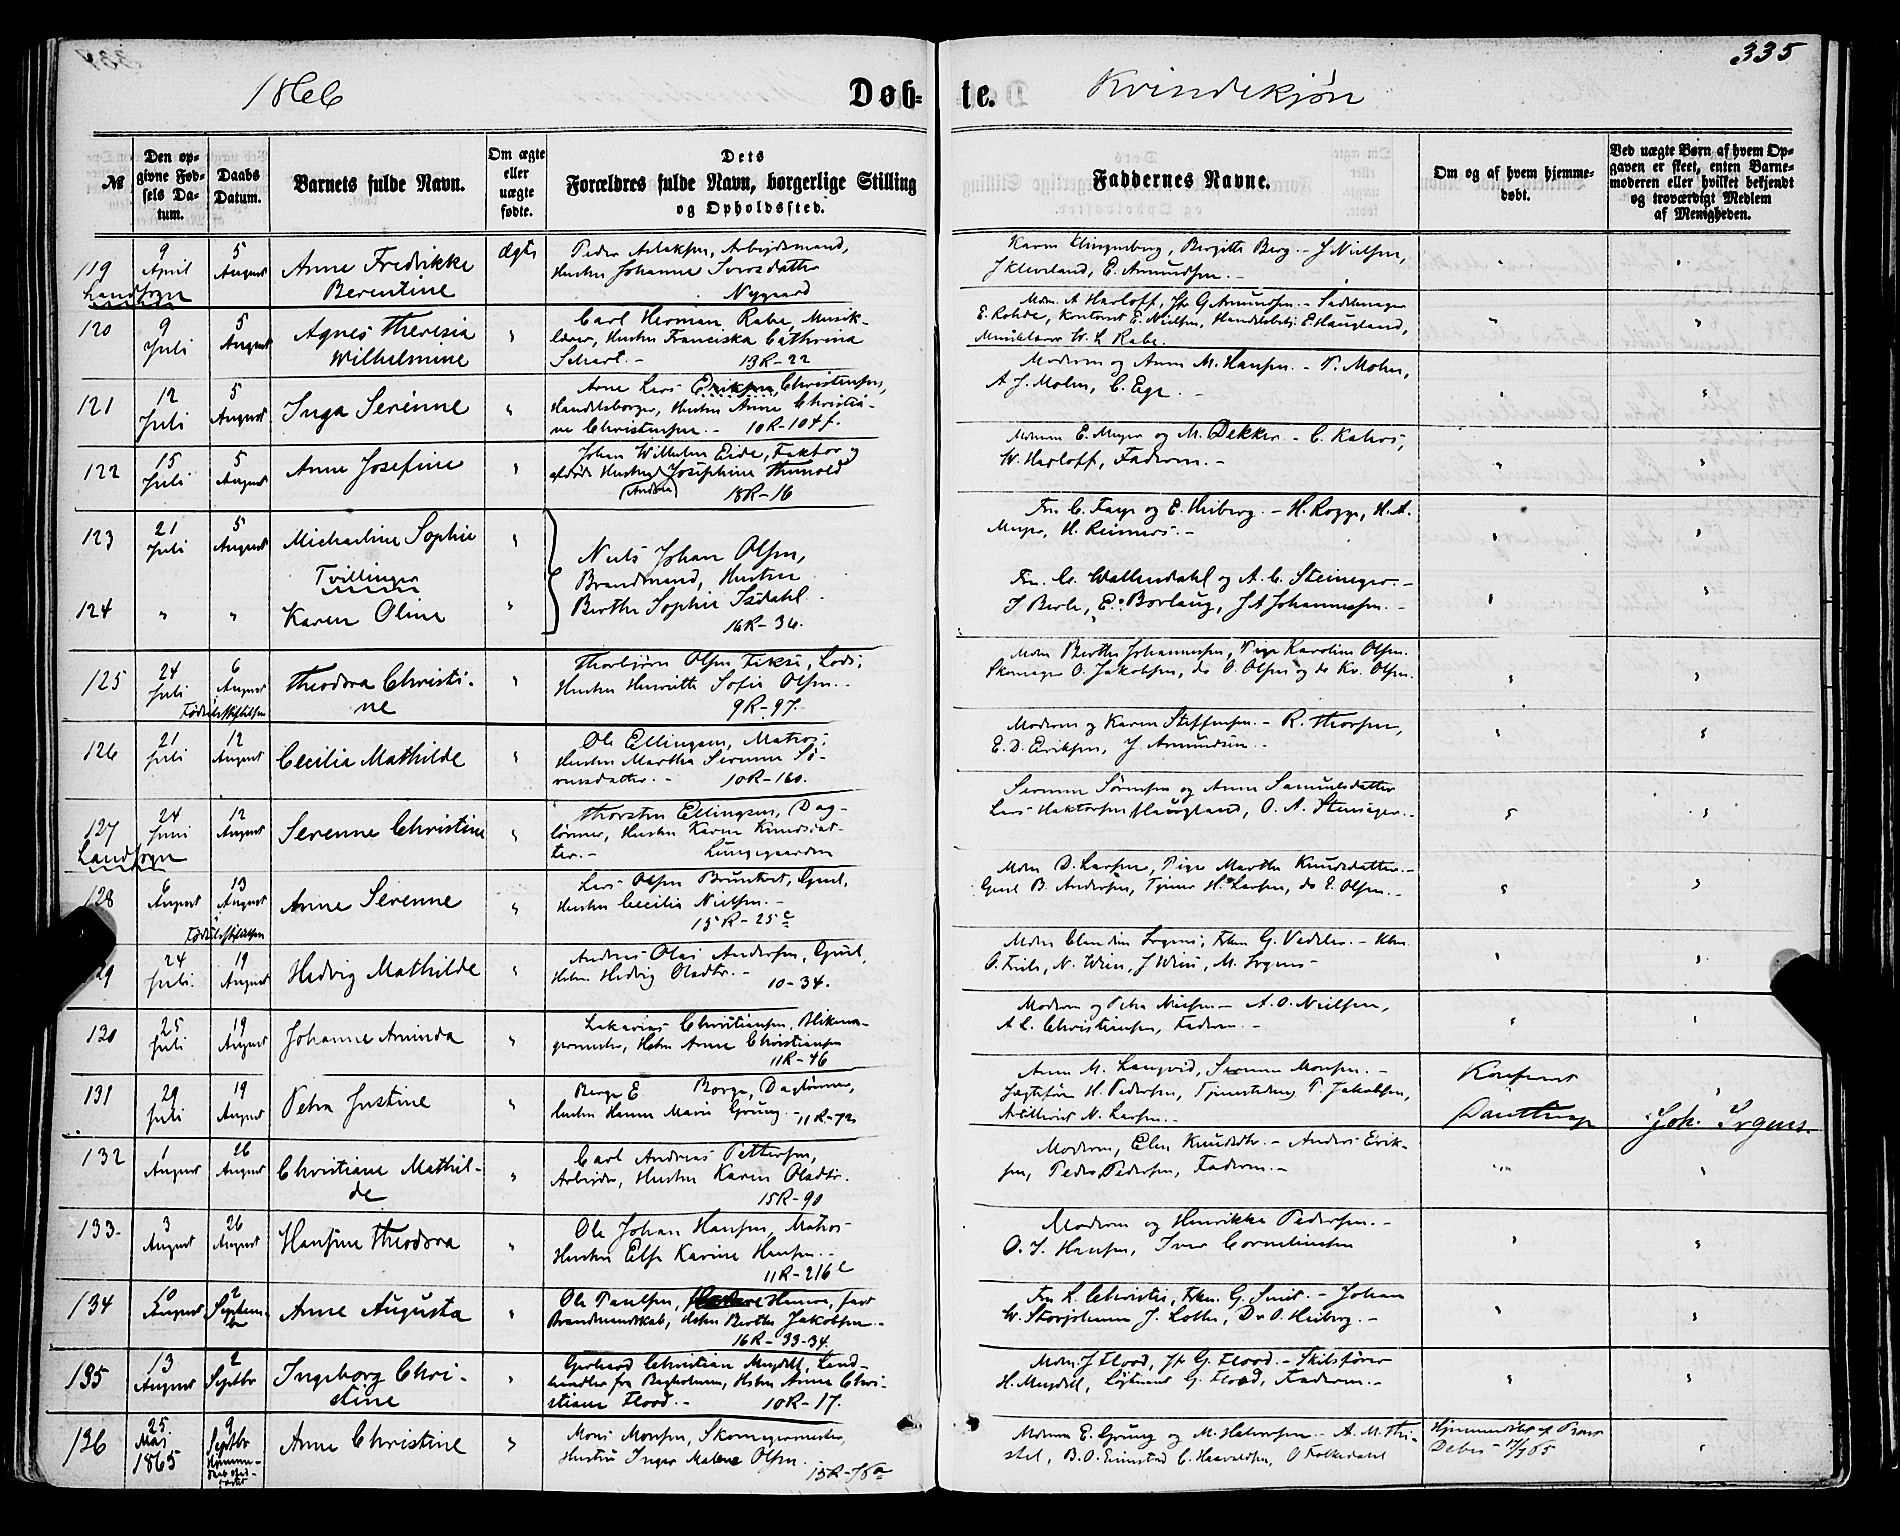 335
1866
Døb-
te.
Kvindekjøn
№
Den op-
givne Fød-
sels Da-
tum.
Daabs
Datum.
Barnets fulde Navn.
Om ægte
eller
uægte
fødte.
Dets
Forældres fulde Navn, borgerlige Stilling
og Opholdssted.
Faddernes Navne.
Om og af hvem hjemme-
døbt.
Ved uægte Børn af hvem Op-
gaven er skeet, enten Barne-
moderen eller hvilket bekjendt
og troværdigt Medlem
af Menigheden.
119
Landsogn
9
April
5
August
Anne Fredrikke
Berentine
Ægte
Peder Aslaksen, Arbejdsmand,
Hustru Johanne Iversdatter
Nygaard
Karen Klingenberg, Bergitte Berg. - J Nielsen,
J Kleveland, E. Amundsen. -
120
9
Juli
5
August
Agnes Theresia
Wilhelmine
Carl Herman Rabe, Musik-
lærer, Hustru Franciska Cathrina
Schart. - 13R-22
Mdm. A Harloff, Jfr G Amundsen. - Sadelmager
E. Rohde, Kontorist E. Nielsen, Handelsbetj. E. Haugland,
Musiklærer W. L Rabe.
121
12
Juli
5
August
Inga Serinne
Arne Lars Eriksen, Christensen,
Handelsborger, Hustru Anne Christia-
ne Christensen. - 10R-104f.
Moderen og Anne M. Hansen. - P. Mohn,
A J. Mohn, C. Ege. -
122
15
Juli
5
August
Anne Josefine
Johan Wilhelm Eide, Faktor og
Hustru Josephine Thunold
(Andrea) 18R-16
Mdmm E. Meyer og M. Dekker. - C. Kahrs,
W. Harloff, Faderen. -
123
21
Juli
5
August
Michaeline Sophie
Tvillinger
Niels Johan Olsen,
Brandmand, Hustru
Berthe Sophie Isdahl.
16R-36.
Fru C. Faye og E. Heiberg. - H. Rogge, H. A.
Meyer, H. Reimers. -
124
Karen Oline
Fru C. Wallendahl og A. C. Steineger. -
S Berle, E. Borlaug, J A Johannessen. -
125
24
Juli
6
August
Fødselsstiftelsen
Theodora Christi-
ne
Thorbjørn Olsen Fiksē, Lods,
Hustru Henriette Sofie Olsen. -
9R-97.
Mdm Berthe Johannessen, Pige Karoline Olsen.
Skomager O. Jakobsen, do O. Olsen og do Kv. Olsen.
126
21
Juli
12
August
Cecilia Mathilde
Ole Ellingsen, Matros;
Hustru Martha Serenne Sø-
rensdatter. - 10R-160.
Moderen og Karen Steffensen. - R. Thorsen,
E. D. Eriksen, J. Amundsen. -
127
Landsogn
24
Juni
12
August
Serenne Christine
Thorsten Ellingsen, Dag-
lønner, Hustru Karen Knudsdat-
ter. - Lungegaarden
Serenne Sørensen og Anna Samuelsdatter
Lars Haktorsen Haugland, O. A. Steineger. -
128
6
August
13
August
Fødselsstiftelsen
Anne Serenne
Lars Olsen Bruntvet, Gevl.
Hustru Cecilia Nielsen. -
15R-25c
Mdm D. Larsen, Pige Marthe Knudsdatter. -
Gevl B. Andersen, Tjener H. Larsen, do E. Olsen. -
29
24
Juli.
19
August
Hedvig Mathilde
Andreas Olai Andersen, Gevl,
Hstru Hedvig Olsdtr. - 10-34.
Mdm Claudine Irgens, Frkn G. Vedeler. -
O. Friele, N. Wiese, J Wiese, M. Irgens -
130
25
Juli
19
August
Johanne Aminda
Zakarias Christiansen, Blikens-
germester, Hstru Anne Christiansen
11R-46
Moderen og Petra Nielsen - A. O. Nielsen,
A L. Christensen, Faderen. -
131
29
Juli
19
August
Petra Justine
Berge E Borge, Dagslønner,
Hustru Hanne Marie Grung. - 11R-72
Anne M. Langved, Serenne Monsen. -
Jægtefører H. Pedersen, Tjenestedreng P. Jakobsen,
N. Larsen. -
Konferert
Danstrup
Joh. Irgens.
132
1
August
26
August
Christiane Mathil-
de
Carl Andreas Pettersen,
Arbejder, Hustru Karen Olsdtr.
15R-90
Moderen, Elen Knudsdtr. - Anders Erik-
sen, Peder Pedersen, Faderen. -
133.
3
August
26
August
Hansine Theodora
Ole Johan Hansen, Matros
Hustru Else Karine Hansen. -
11R-216c
Moderen og Henrikke Pedersen. -
O. J. Hansen, Iver Corneliussen
134
10
August
2
Septem-
br
Anne Augusta
Ole Paulsen, Hamre, fast
Brandmandskab, Hstru Berthe Jakobsen. -
16R-33-34.
Fru L. Christie, Frkn. G. Smit. - Johan
W. Storjohann J. Lothe, Dr O. Heiberg. -
135
13
August
2
Septbr
Ingeborg Chri-
stine
Gerhard Christian Mugdell, Land-
handler fra Bagholmen, Hstru Anne Chri-
stiane Flood. - 10R-17.
Mdm. J Flood, Jfr G. Flood. - Skibsfører
H. Mugdell, Løjtnant G. Flood, Faderen. -
136
25.
Mai
1865
9
Septbr
Anne Christine
Mons Monsen, Skomagermester,
Hustru Inger Malene Olsen.
15R-76a
Mdmm E. Grung og M. Halvorsen. - A. M. Thi-
stel, B. O. Enimstad C. Haavaldsen, O Folkedahl
Hjemmedøbt af Præsten
Debes - 17/7 65